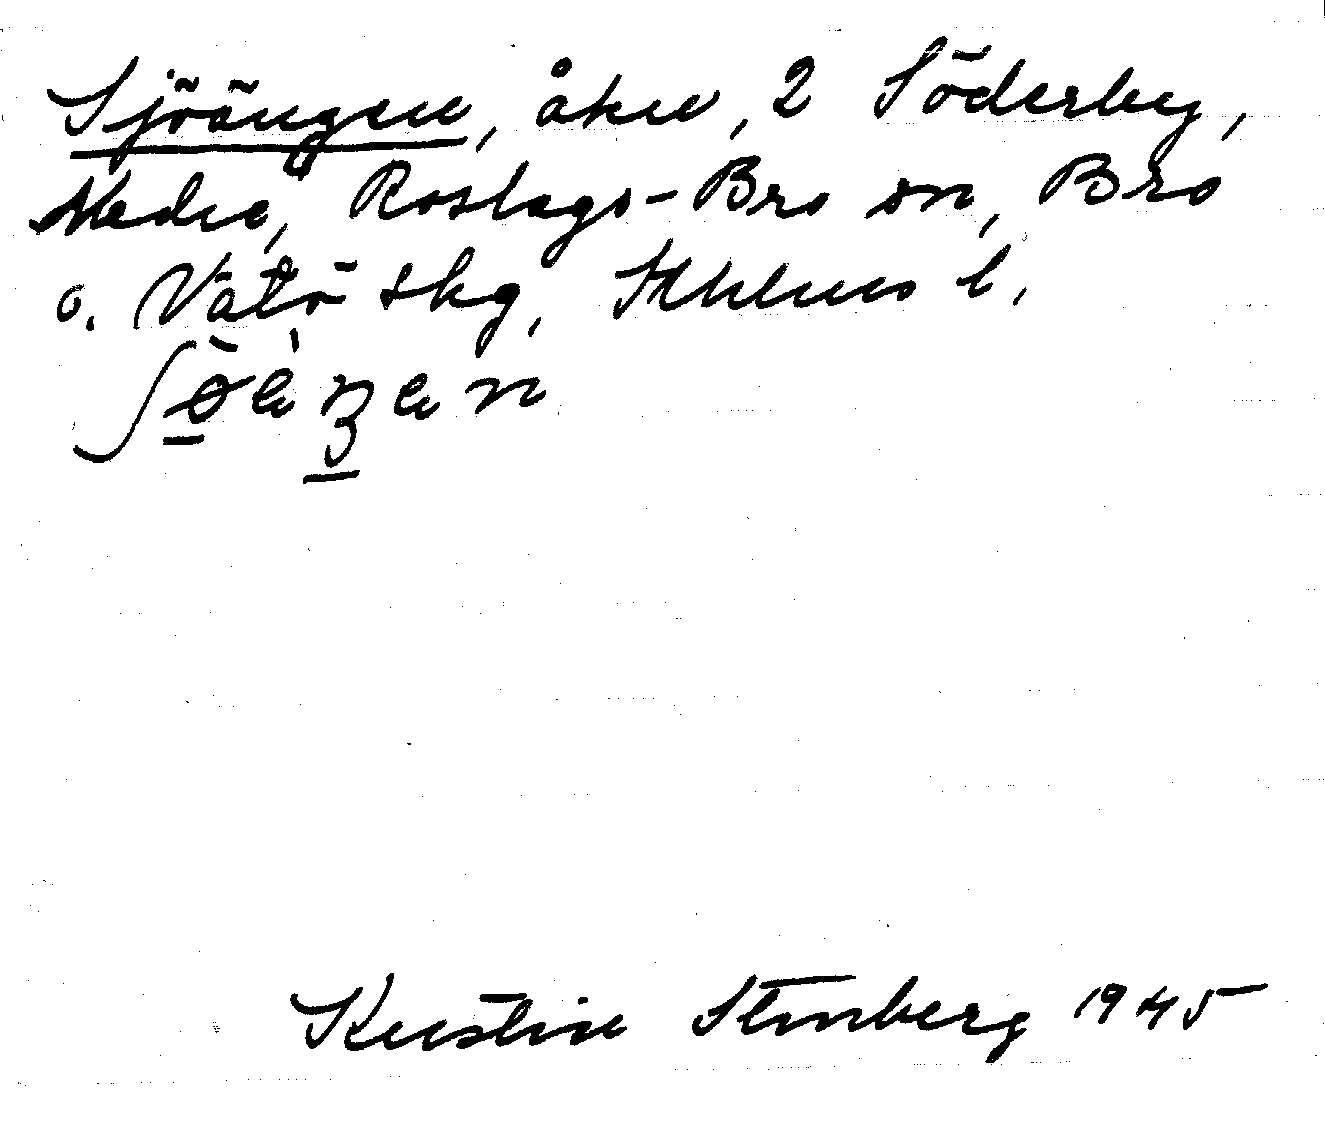 Sjöängen, åker, 2 Söderby,
Nedre, Roslags-Bro sn, Bro
o. Vätö skg, Sthlms l.
Kerstin Stenberg 1945